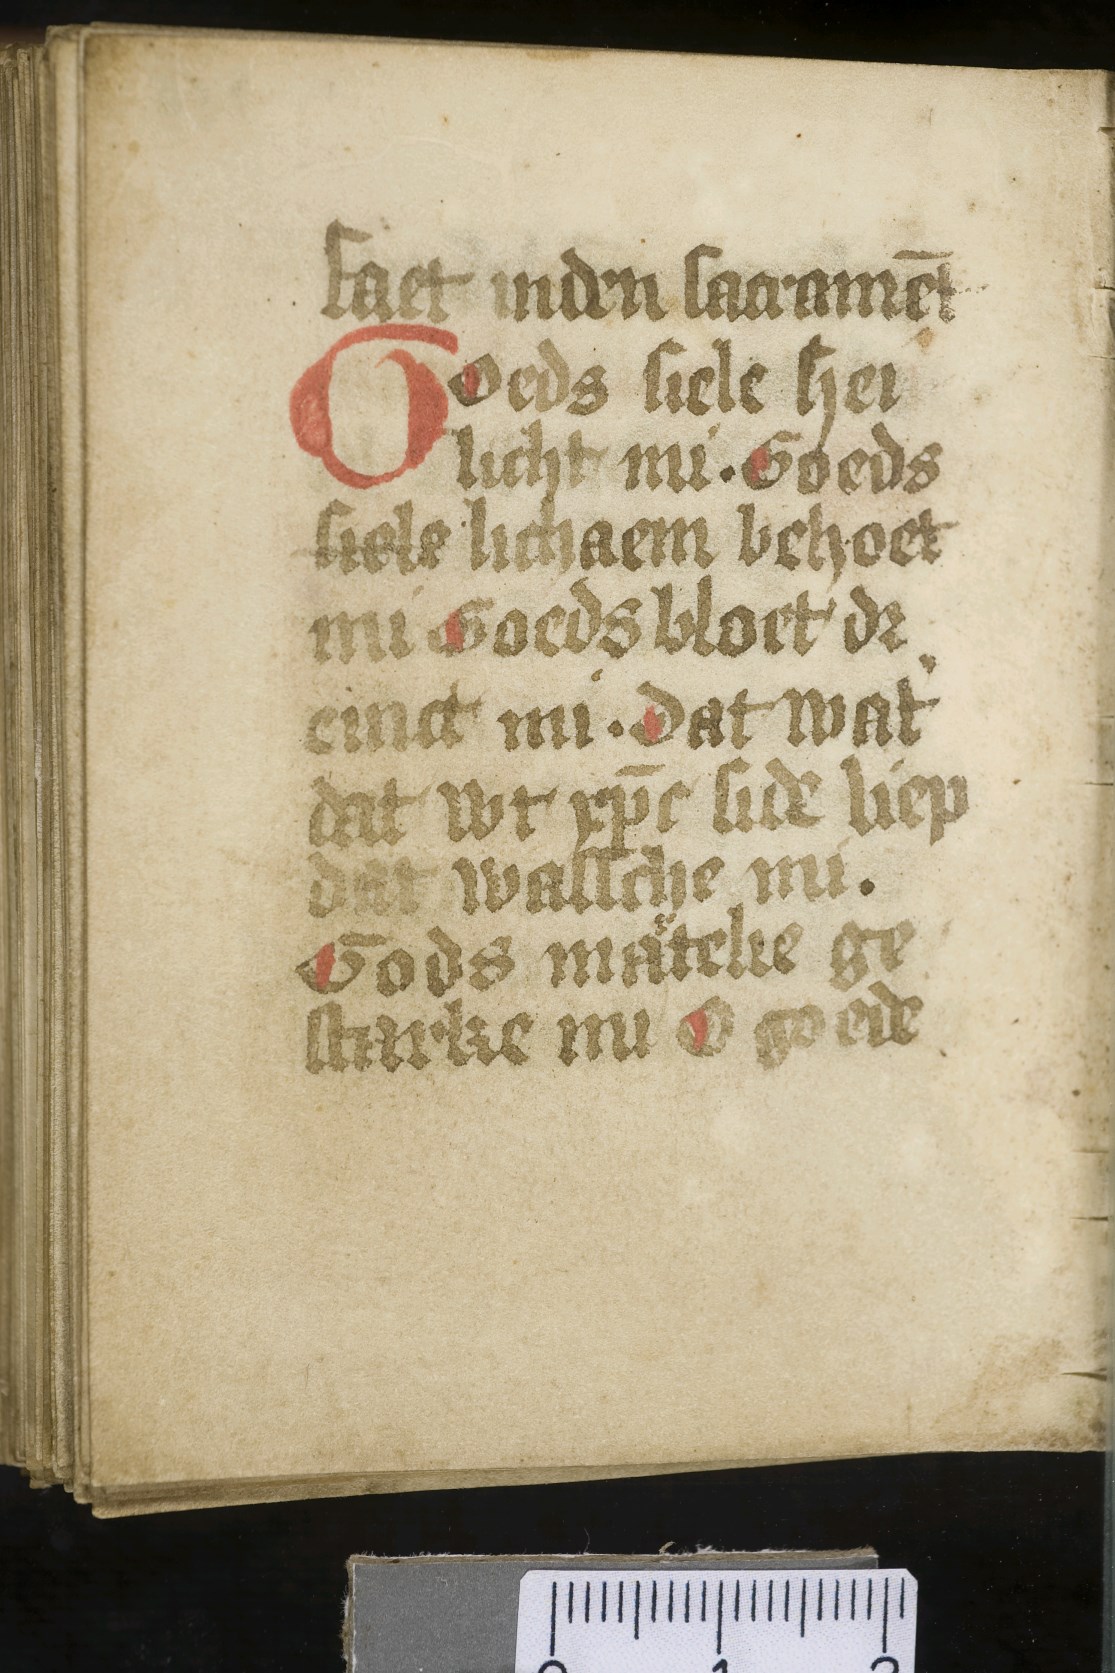 faet inden sacramēt
Goeds siele hei
licht mi. Goeds
siele lichaem behoet
mi Goeds bloet dr
einct mi. Dat wat'
dat wt xp̄c side liep
dat wassche mi.
Gods mātelie ge
starke mi O goede
0 1 2